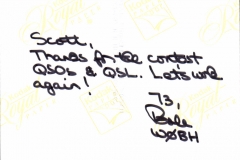 Scott,
Thanks for the contest
QSOs & QSL. Let's work
again!
73,
WØBH